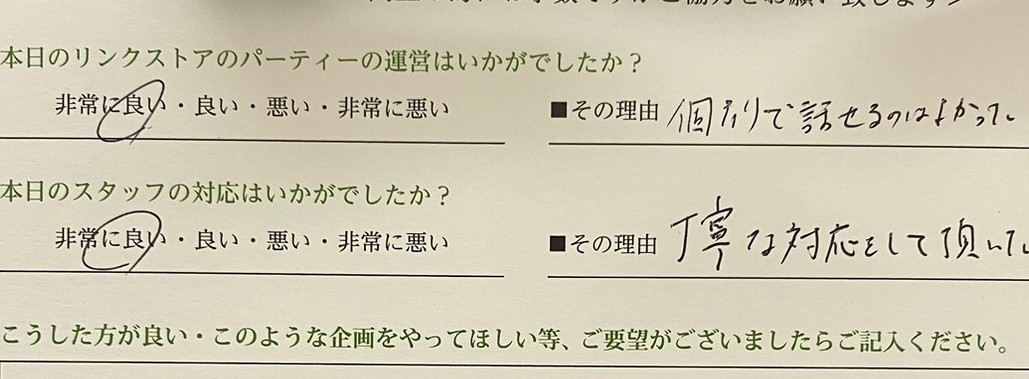 本日のリンクストアのパーティーの運営はいかがでしたか？
非常に良い・良い・悪い・非常に悪い ■その理由 個別で話せるのはよかった。
本日のスタッフの対応はいかがでしたか？
非常に良い・良い・悪い・非常に悪い ■その理由 丁寧な対応をして頂いた
こうした方が良い・このような企画をやってほしい等、ご要望がございましたらご記入ください。